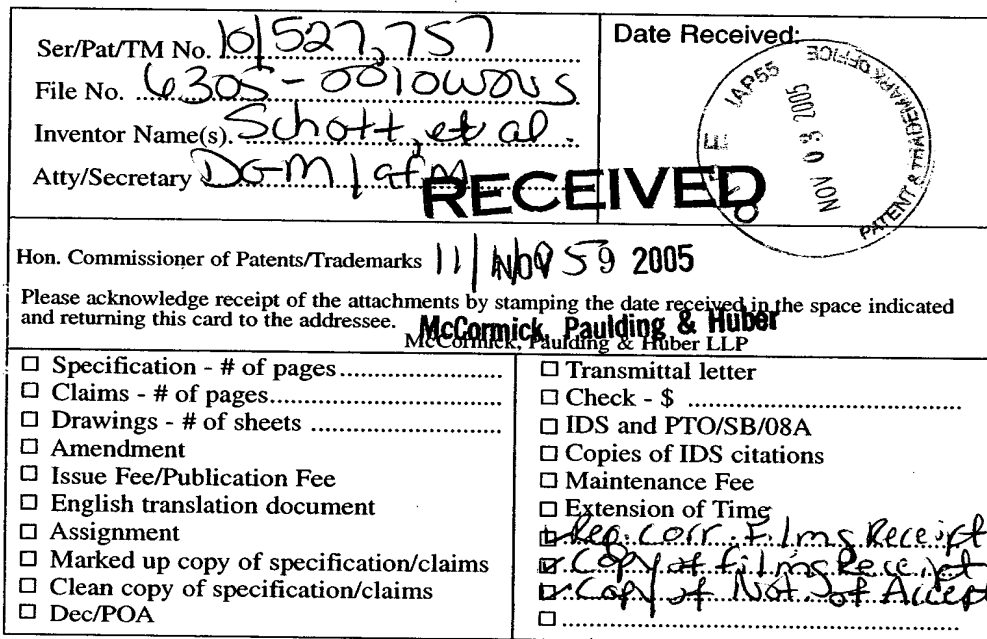 Ser/Pat/TM No. 10/527,757
File No. 6305-0010WOUS
Inventor Name(s). Schott, et al.
Atty/Secretary DGM/afm
RECEIVED
Date Received:
IAP55
NOV 03 2005
PATENT & TRADEMARK OFFICE
Hon. Commissioner of Patents/Trademarks 11/ NOV 9 2005
Please acknowledge receipt of the attachments by stamping the date received in the space indicated
and returning this card to the addressee.
McCormick, Paulding & Huber
McCormick, Paulding & Huber LLP
☐ Specification - # of pages
☐ Claims - # of pages
☐ Drawings - # of sheets
☐ Amendment
☐ Issue Fee/Publication Fee
☐ English translation document
☐ Assignment
☐ Marked up copy of specification/claims
☐ Clean copy of specification/claims
☐ Dec/POA
☐ Transmittal letter
☐ Check - $
☐ IDS and PTO/SB/08A
☐ Copies of IDS citations
☐ Maintenance Fee
☐ Extension of Time
Req. corr. Filing Receipt
Copy of Filing Receipt
Copy of Not. of Accept
☐